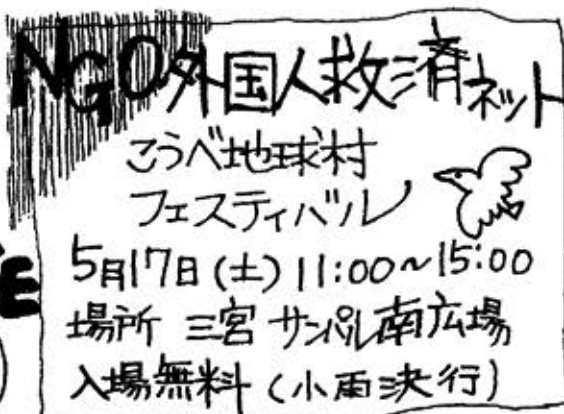 NGO外国人救済ネット
こうべ地球村
フェスティバル
5月17日(土) 11:00~15:00
場所 三宮 サンパル南広場
入場無料 (小雨決行)
E